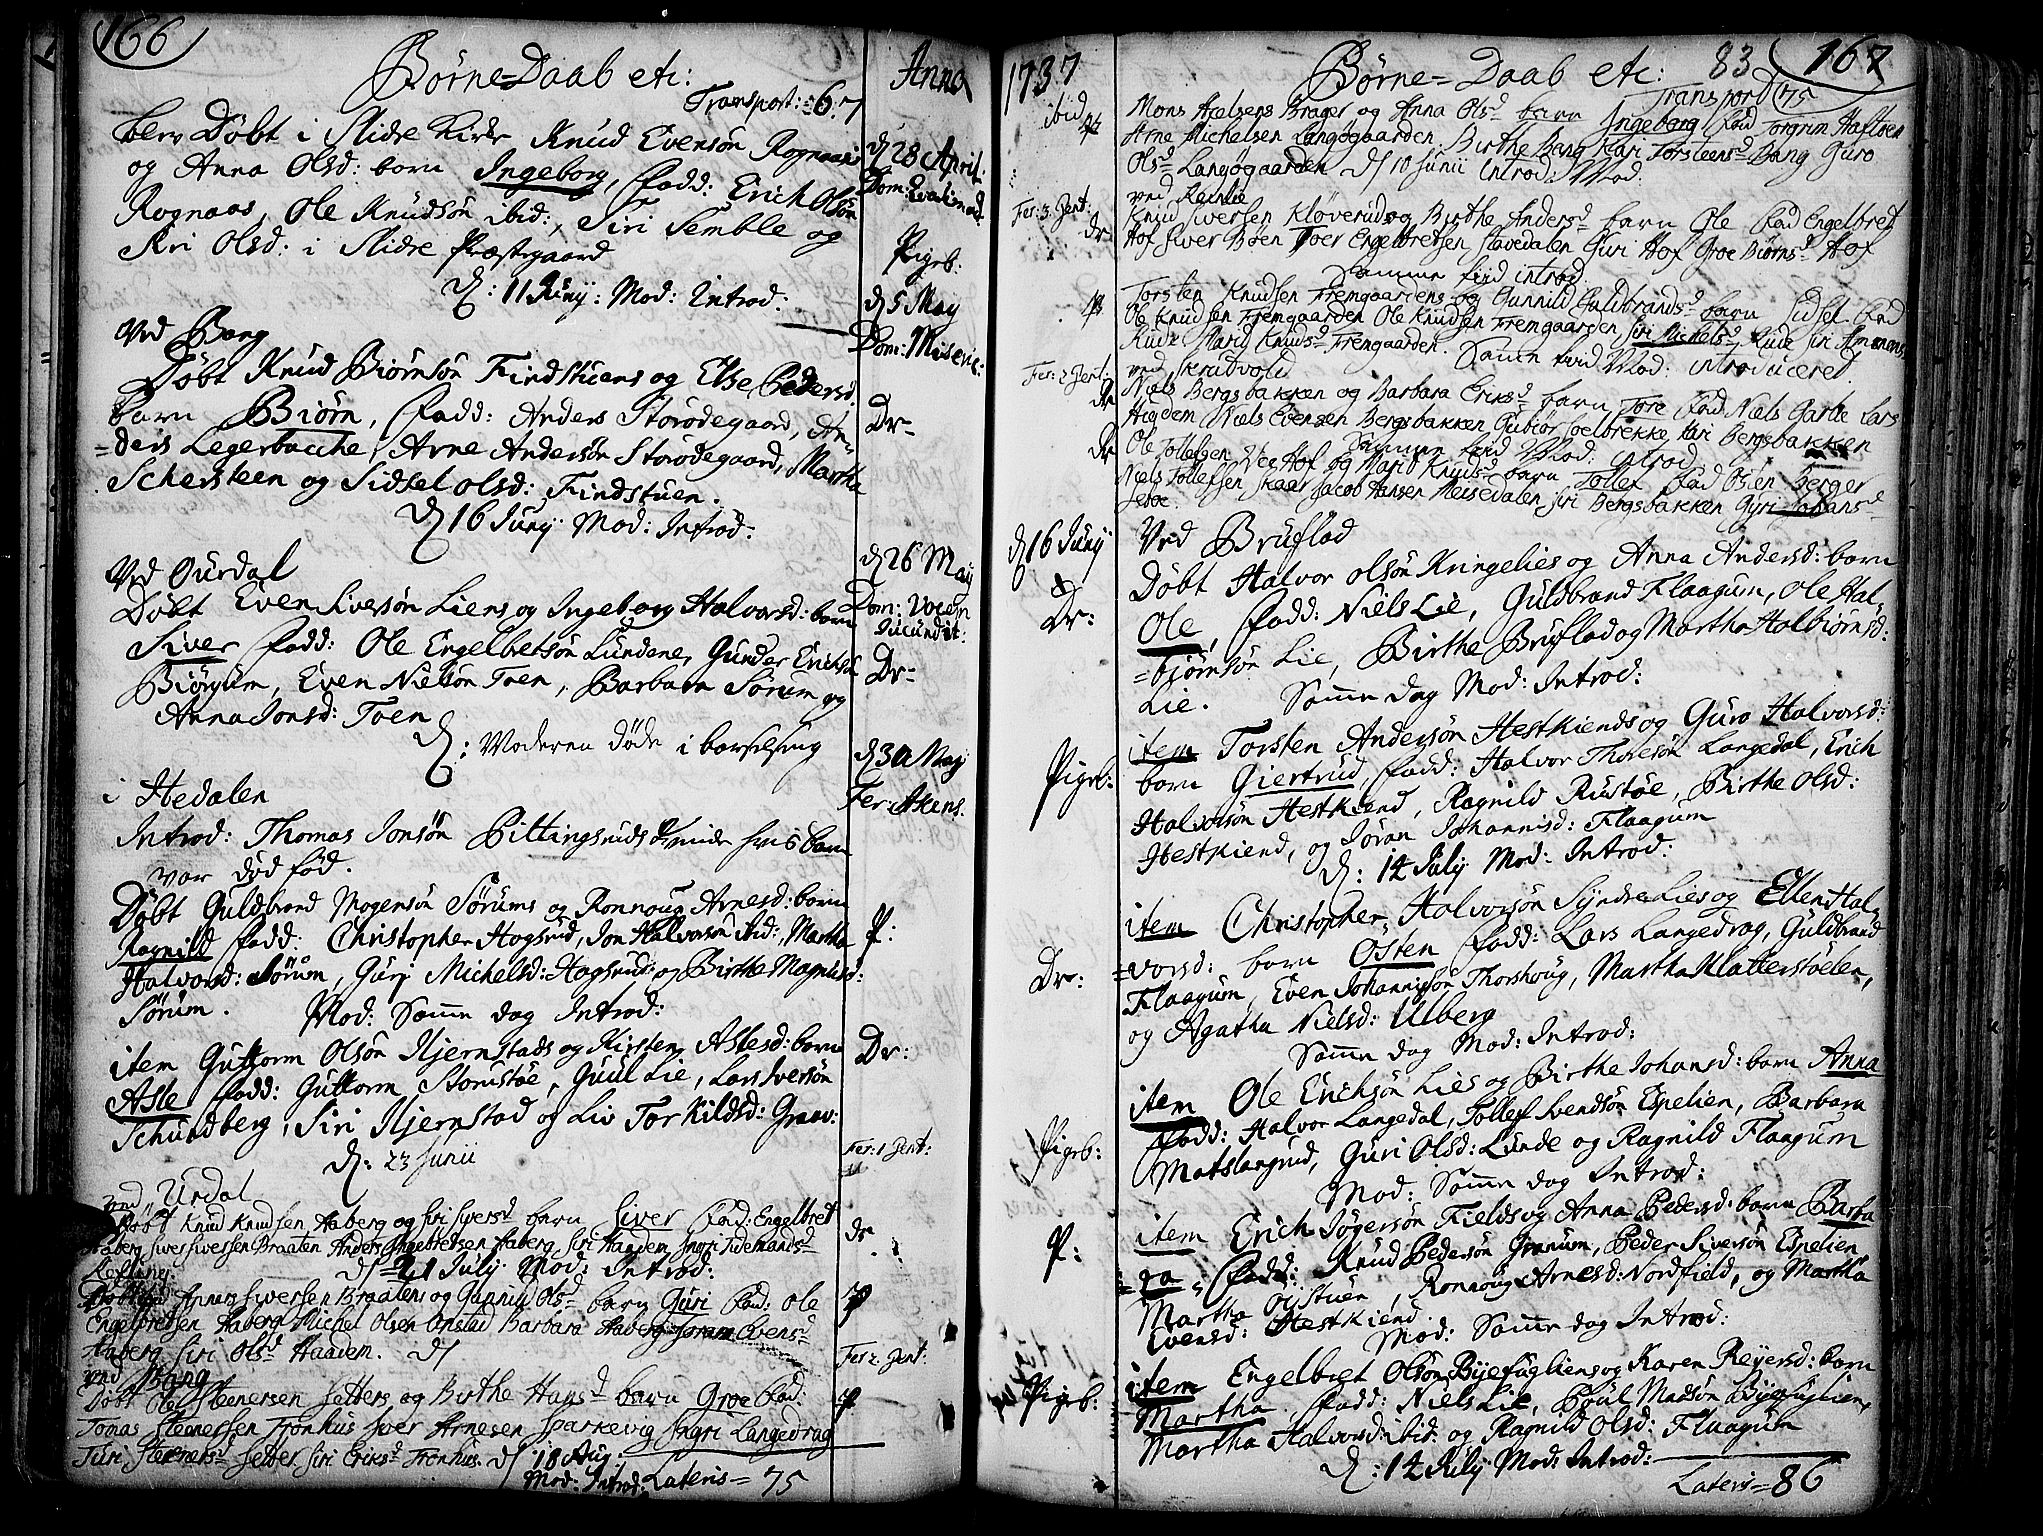 166
Børne=Daab etc:
Anno
Transport: 67
blev Døbt i Slidre Kirke Knud Evensøn Rognaas
og Anna Olsd: barn Ingeborg, fadd: Erich Olsøn
Rognaas, Ole Knudsøn ibid:, Siri Semble og
Kri Olsd: i Slidre Præstegaard
d: 11 Juny: Mod: Introd:
d 28 April:
Pigeb:
Ved Bang
d 5 May
Dom: Miseric:
Døbt Knud Biørnsøn Findstuens og Else Pedersd.
barn Biørn, fadd: Anders Storødegaard, An-
=ders Legerbacche, Arne Andersøn Storødegaard, Martha
Schersteen og Sidsel Olsd: Findstuen.
d 16 Juny Mod: Introd:
Dr-
Ved Ourdal
d 26 May
Dom: Vocem
Jucundit:
Døbt Even Siversøn Liens og Ingeborg Halvorsd: barn
Siver fadd: Ole Engelbetsøn Lundene, Gunder Erichsøn
Biørgum, Even Nielsøn Toen, Barbara Sørum og
Anna Jonsd: Toen
Dr-
d: Moderen døde i barselseng
i Hedalen
d 30 May
Fer: Ascens.
Introd: Thomas Jonsøn Pittingsruds qvinde hvis barn
var død fød.
Døbt Guldbrand Mogensøn Sørums og Ronnoug Arnesd: barn
Ragnild fadd: Christopher Hogsrud, Jon Halvorsøn ibid:, Martha
Halvorsd: Sørum, Gurj Michelsd: Hogsrud og Birthe Magnusd:
Sørum. Mod: Samme dag Introd:
P:
item Guttorm Olsøn Hjernstads og Kirsten Aslesd: barn
Asle fadd: Guttorm Stomstøe, Guul Lie, Lars Iversøn
Schundberg, Siri Hjernstad og Liv Torkildsd: Graav:
d: 23 Junii
Dr:
Fer: 1 Pent:
ved Urdal
Døbt Knud Knudsen Aaberg og Siri Siversd barn Siver fad: Engelbret
Aaberg Siver Siversen Braaten Anders Engebretsen Aaberg Siri Haadem Ingri
d 21 July Mod: Introd:
dr
Siversen Braatens og Gunnild Olsd barn Guri fad: Ole
Engelbretsen Aaberg Michel Olsen Onstad Barbara Aaberg Joran Evensd
Aaberg Siri Olsd Haadem. d
Fer 2 Pent:
ved Bang
Døbt Ole Steenersen Setters og Birthe Hansd barn Groe fad:
Tomas Steenersen Tronhus Siver Arnesen Sparkevig Ingri Langedrag
Turi Steenersd Setter Siri Eriksd Tronhus. d 18 Aug:
Mod: Introd: Lateris= 75
1737
Børne=Daab etc: 83 167
Transport 75
ibid
Mons Axelsens Brager og Anna Olsd barn Ingeborg fad Torgrim Haftsen
Arne Michelsen Langøgaarden Birthe Bang Kari Torsteensd Bang Guro
Olsd Langøgaarden d 10 Junii introd: Mod.
ved Reinlie
Fer: 3 Pent:
dr
Knud Siversen Kløveruds og Birthe Andersd barn Ole fad Engelbret
Hof Siver Bøen Toer Engelbretsen Slavedalen Guri Hof Groe Biørnsd Hof
Samme tiid introd
Torsten Knudsen Fremgaardens og Gunnild Guldbrandsd barn Sidsel fad
Ole Knudsen Fremgaarden Ole Knudsen Fremgaarden Siri Michelsd Rude Siri
Rude Marit Knudsd Fremgaarden. Samme tiid Mod: introduceret.
Fer: 2 Pent:
ved Skrudvold
dr
Niels Bergsbakken og Barbara Eriksd barn Tore fad Niels Garthe Lars
Høgdem Niels Evensen Bergsbakken Gubiør Joelbrekke Kari Bergsbakken
Samme tiid Mod: introd
dr
Ole Tollefsen ved Hof og Marit Knudsd barn Tollef fad Osten Berger
Niels Tollefsen Skaar Jacob Hansen Meisedalen Siri Bergsbakken Gyri Johansd
d 16 Juny
Ved Bruflad
Døbt Halvor Olsøn Kringelies og Anna Andersd: barn
Ole, fadd: Niels Lie, Guldbrand Flaagum, Ole Hal-
=bjørnsøn Lie, Birthe Bruflad og Martha Halbiørnsd:
Lie. Samme dag Mod: Introd:
Dr:
item Torsten Andersøn Hestkiends og Guro Halvorsd:
barn Giertrud, fadd: Halvor Thoresøn Langedal, Erich
Halvorsøn Hestkiend, Ragnild Rustøe, Birthe Olsd:
Hestkiend, og Jøran Johannisd: Flaagum
d: 14 July Mod: Introd:
Pigeb:
item Christopher Halvorsøn Syndre Lies og Ellen Hal-
=vorsd: barn Østen fadd: Lars Langedrag, Guldbrand
Flaagum, Even Johannisøn Thorshoug, Martha Klatterstøelen,
og Agatha Nielsd: Ulberg
Samme dag Mod: Introd:
Dr:
item Ole Erichsøn Lies og Birthe Johansd: barn Anna
fadd: Halvor Langedal, Tollef Svendsøn Espelien, Barbara
Matslangrud, Guri Olsd: Lunde og Ragnild Flaagum
Mod: Samme dag Introd:
Pigeb:
item Erich Jøgersøn Fields og Anna Pedersd: barn Barba
=ra, fadd: Knud Pedersøn Granum, Peder Siversøn Espelien
Martha Oistuen, Ronnoug Arnesd: Nordfield, og Martha
Evensd: Hestkiend.
Mod: Samme dag Introd:
P:
item Engelbret Olsøn Byefugliens og Karen Reyersd: barn
Martha, fadd: Niels Lie, Poul Madsøn Byefuglien,
Martha Halvorsd: ibid: og Ragnild Olsd: Flaagum
d: 14 July Mod: Introd:
Pigeb:
Lateris= 86